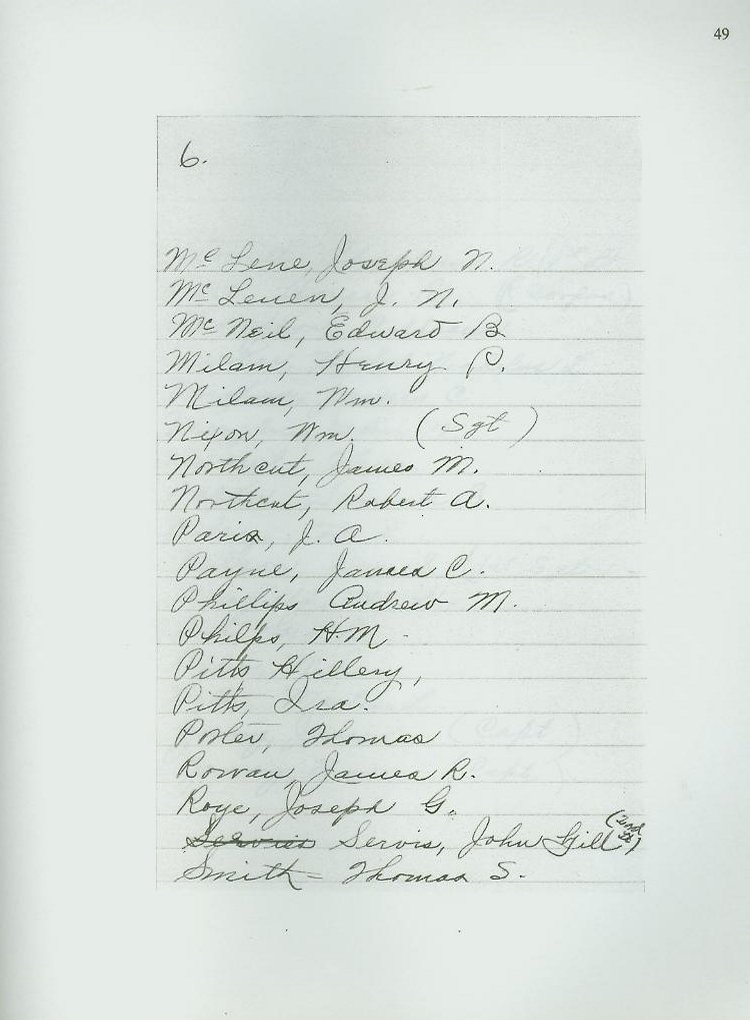 49
6.
Mc Lene, Joseph N.
Mc Leuen, J. N.
Mc Neil, Edward B
Milam, Henry P.
Milam, Wm.
Nixon, Wm. (Sgt)
Northcut, James M.
Northcut, Robert A.
Paris, J. A.
Payne, James C.
Phillips Andrew M.
Philps, H.M
Pitts Hillery,
Pitts, Ira.
Porter, Thomas
Rowan, James R.
Roye, Joseph G.
Servis, John Gill (2nd Lt)
Smith - Thomas S.